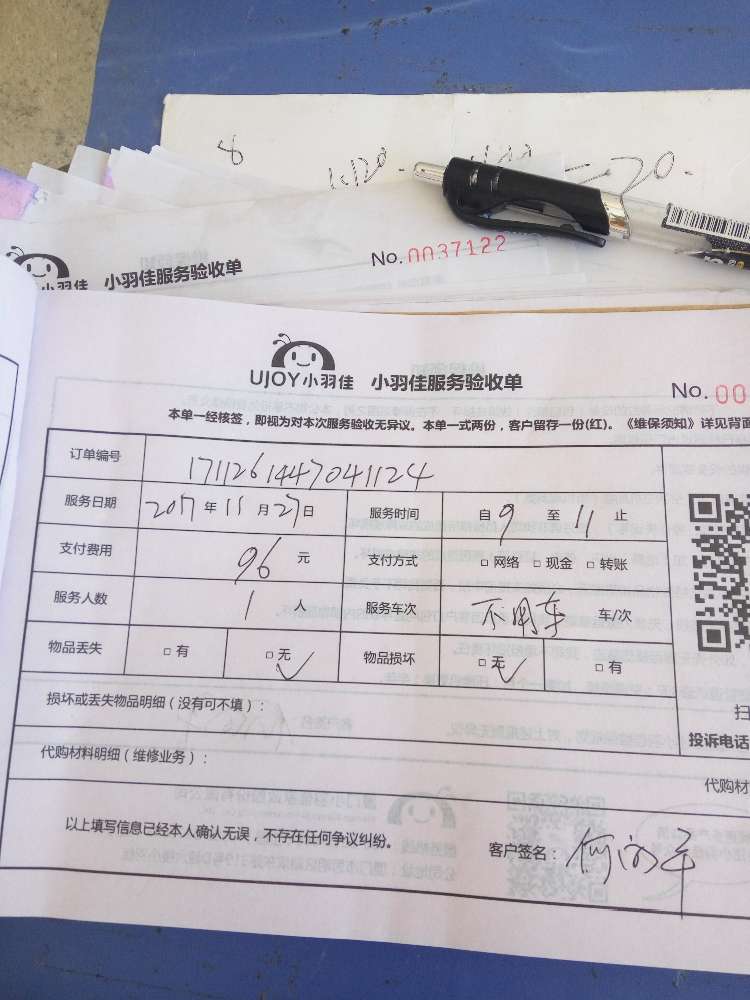 8
小羽佳 小羽佳服务验收单 No. 0037122
UJOY小羽佳 小羽佳服务验收单 No. 00
本单一经核签，即视为对本次服务验收无异议。本单一式两份，客户留存一份(红)。《维保须知》详见背面
订单编号 1711261447041124
服务日期 2017年11月27日 服务时间 自9至11止
支付费用 96元 支付方式 □网络 □现金 □转账
服务人数 1人 服务车次 不用车 车/次
物品丢失 □有 □无 ✓ 物品损坏 □无 ✓ □有
损坏或丢失物品明细（没有可不填）：
扫
投诉电话
代购材料明细（维修业务）：
代购材
以上填写信息已经本人确认无误，不存在任何争议纠纷。
客户签名：